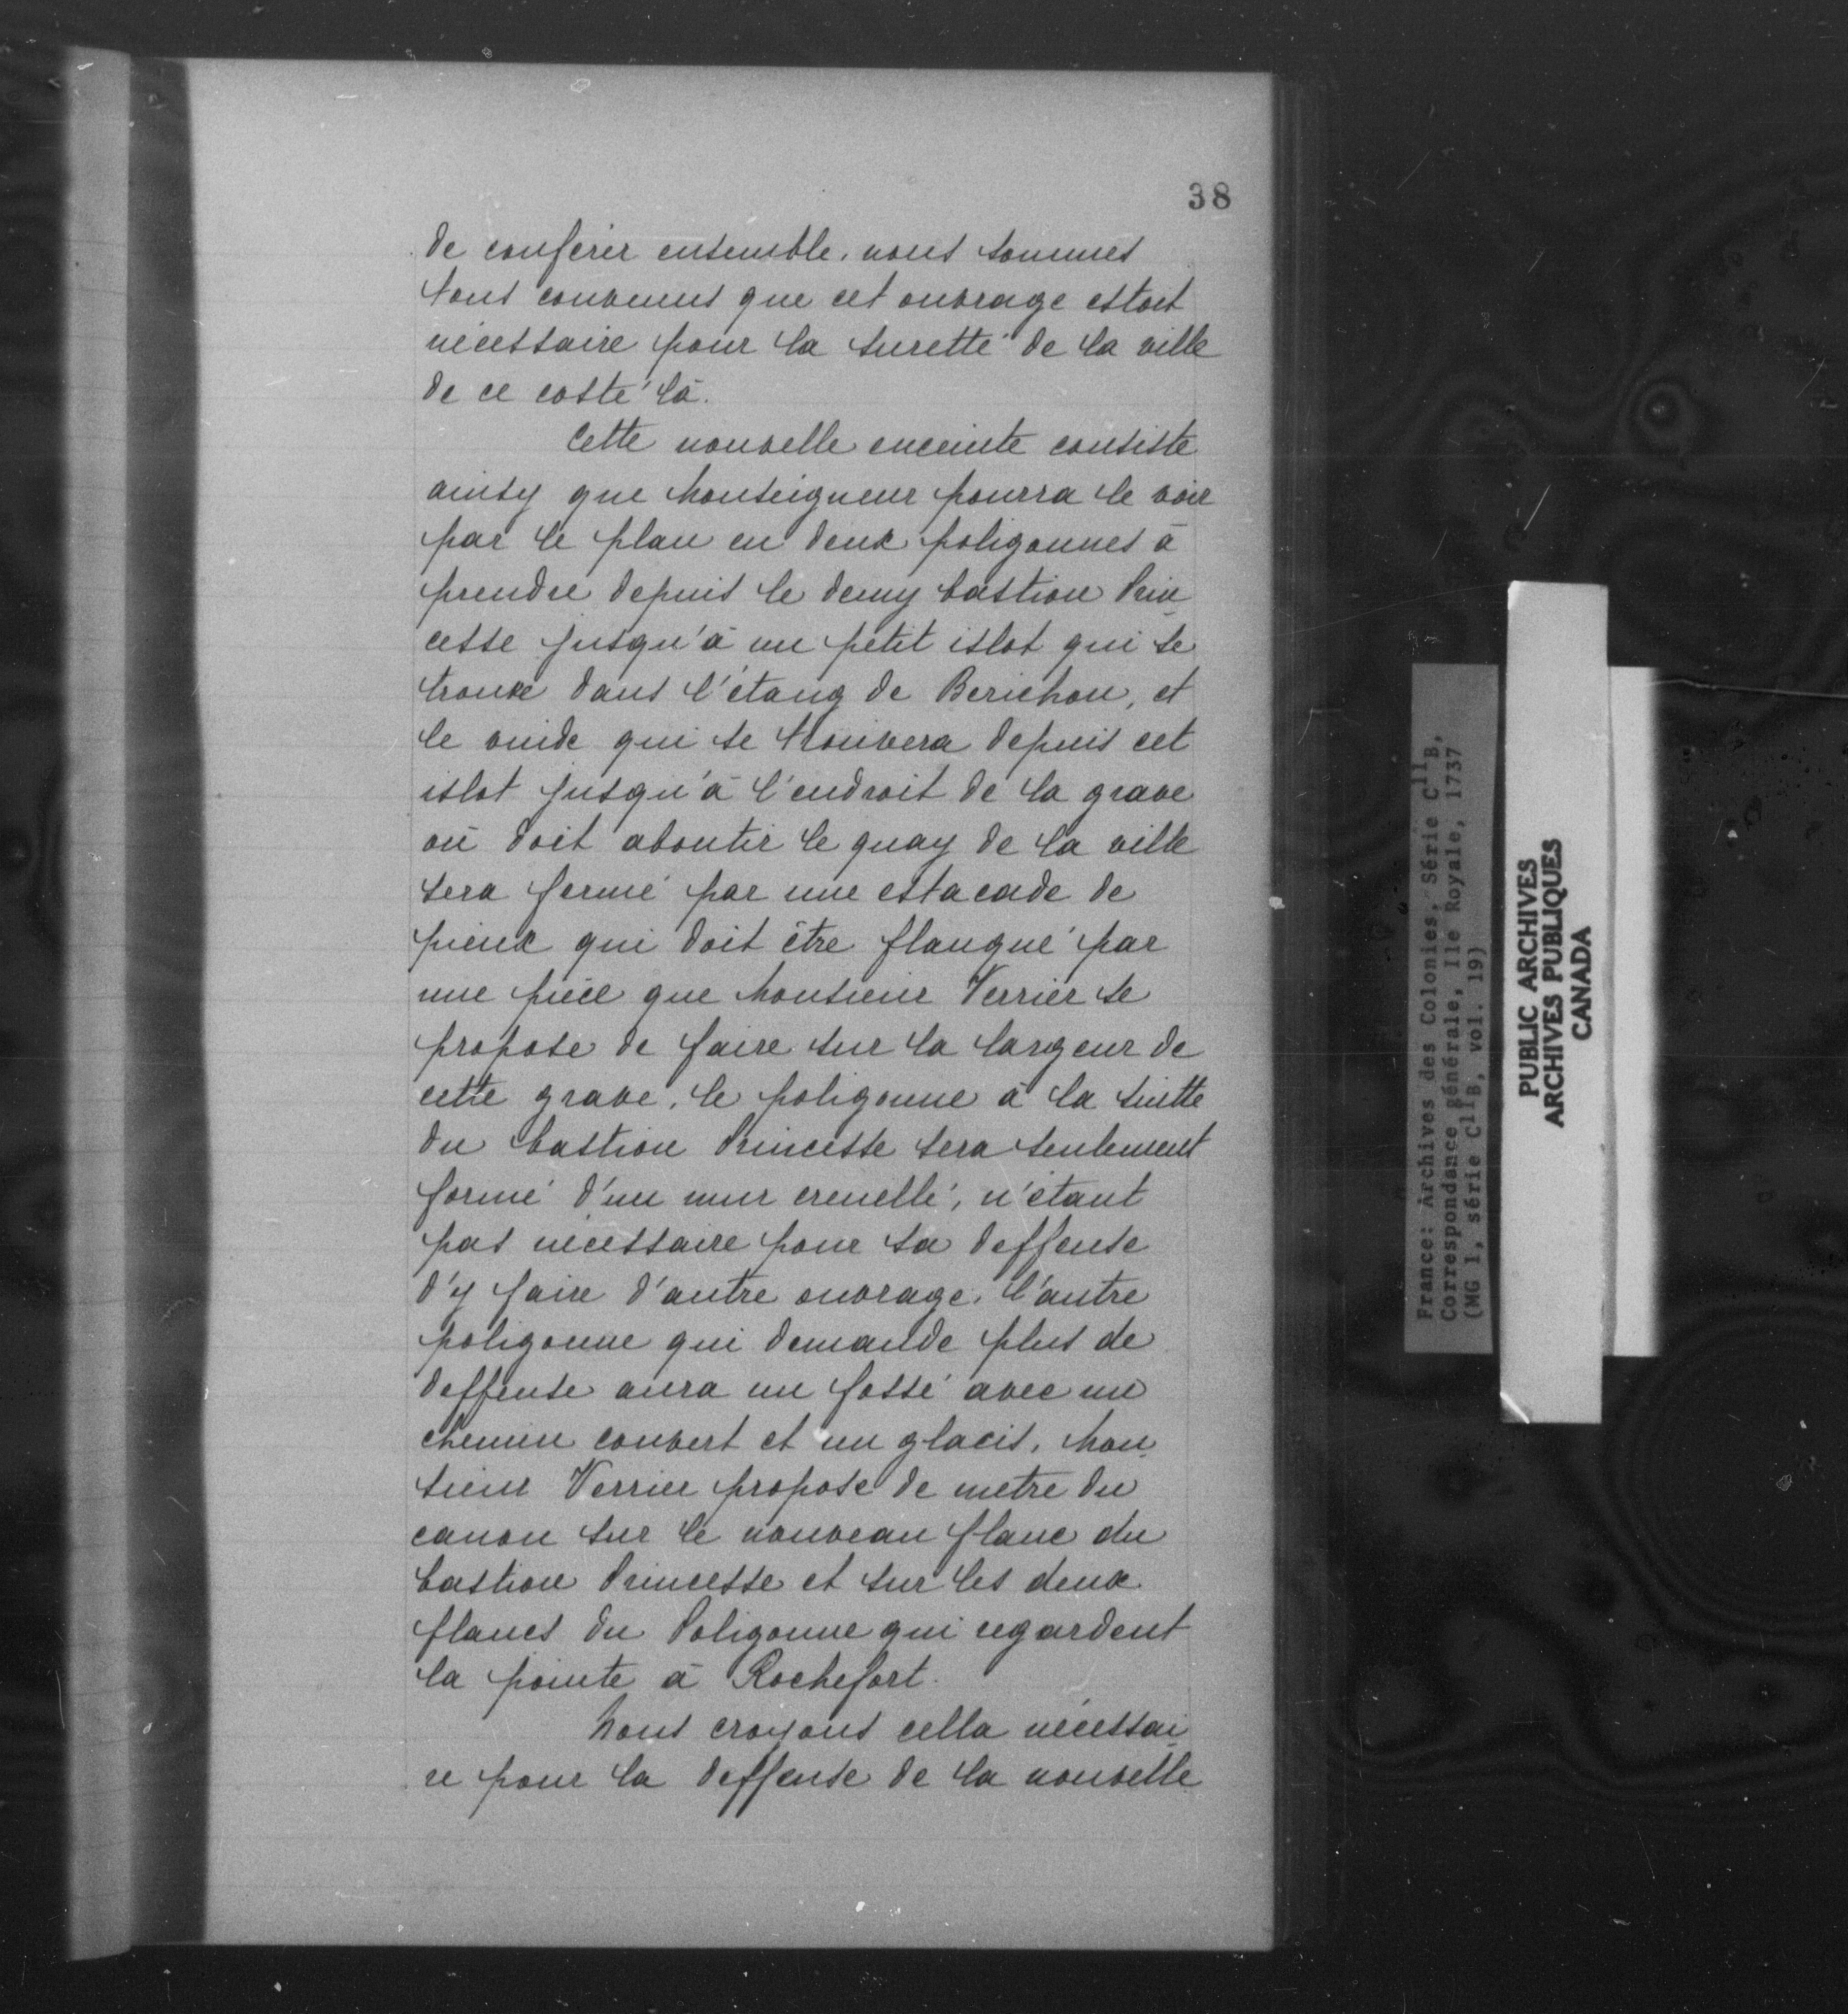 38
de conférer ensemble, nous sommes
tous convenus que cet ouvrage estoit
nécessaire pour la suretté de la ville
de ce costé là.
Cette nouvelle enceinte consiste
ainsy que Monseigneur pourra le voir
par le plan en deux poligonnes à
prendre depuis le demy bastion Prin
cesse jusqu'à un petit islot qui se
trouve dans l'étang de Berichon, et
le vuide qui se trouvera depuis cet
islot jusqu'à l'endroit de la grave
où doit aboutir le quay de la ville
sera fermé par une estacade de
pieux qui doit être flanqué par
une pièce que Monsieur Verrier se
propose de faire sur la largeur de
cette grave, le poligonne à la suitte
du bastion Princesse sera seulement
formé d'un mur crenellé, n'étant
pas nécessaire pour sa deffense
d'y faire d'autre ouvrage, l'autre
poligonne qui demande plus de
deffense aura un fossé avec un
chemin couvert et un glacis, Mon
sieur Verrier propose de metre du
canon sur le nouveau flanc du
bastion Princesse et sur les deux
flancs du Poligonne qui regardent
la pointe à Rochefort.
Nous croyons cella nécessai
re pour la deffense de la nouvelle
France: Archives des Colonies. Série C11B,
Correspondance générale, Ile Royale, 1737
(MG 1, série C11B, vol. 19)
PUBLIC ARCHIVES
ARCHIVES PUBLIQUES
CANADA